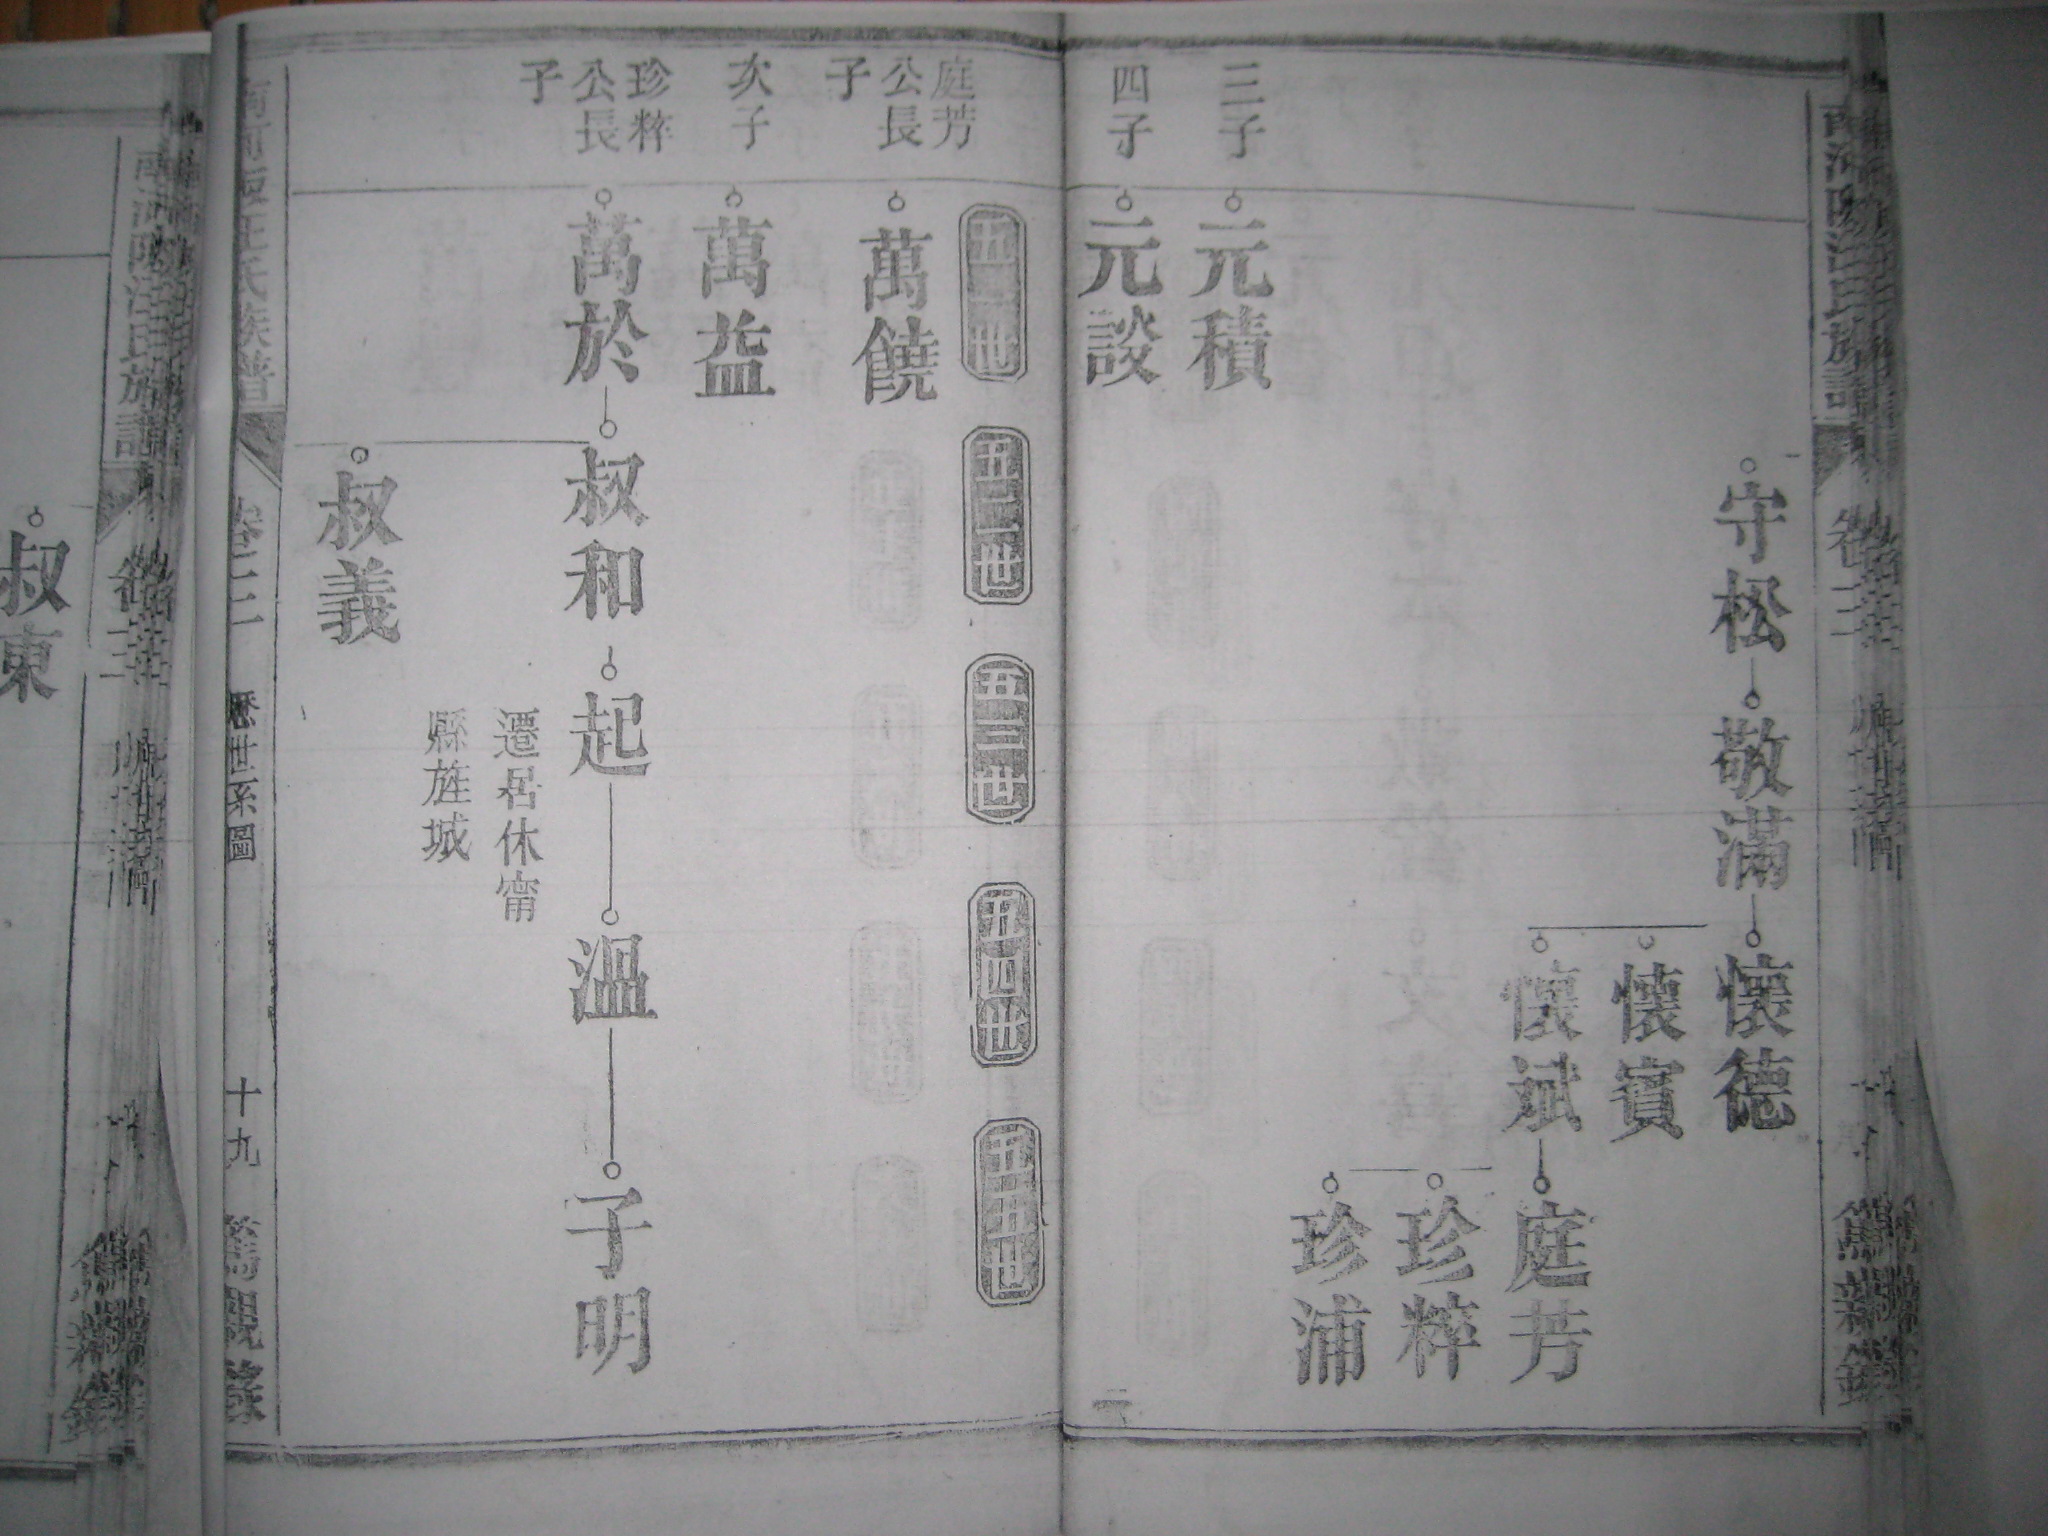 守松
敬滿
懷德
懷賓
懷斌
庭芳
珍粹
珍浦
三子
元積
四子
元談
五一世
五二世
五三世
五四世
五五世
庭芳
公長
子
萬饒
次子
萬益
珍粹
公長
子
萬於
叔和
起
溫
子明
遷居休甯
縣旌城
叔義
氏族譜
卷三
歷世系圖
十九
叔東